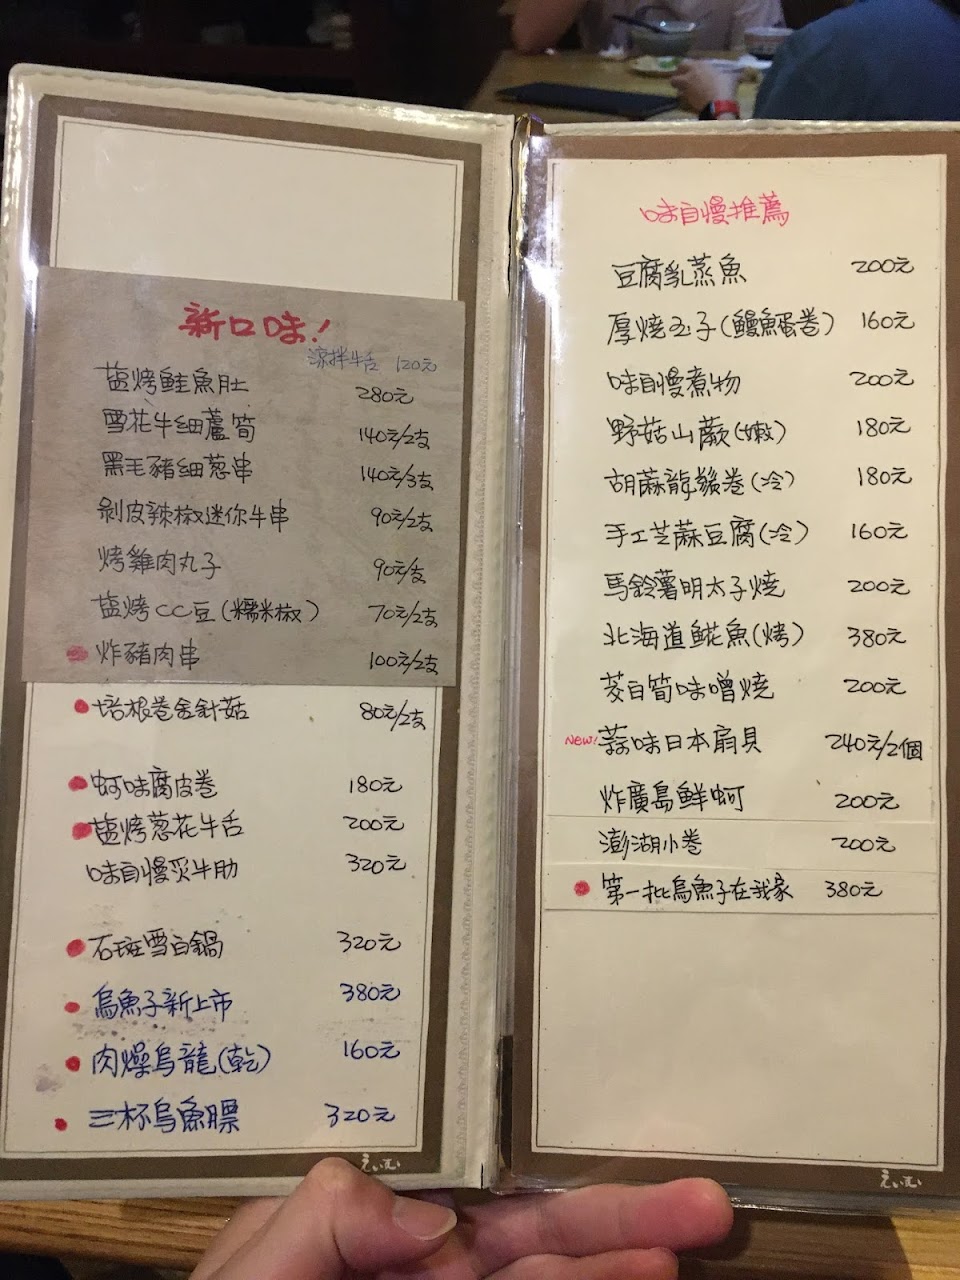 新口味!
涼拌牛舌 120元
塩烤鮭魚肚 280元
雪花牛細蘆筍 140元/2支
黑毛豬細葱串 140元/3支
剝皮辣椒迷你牛串 90元/2支
烤雞肉丸子 90元/支
塩烤CC豆(糯米椒) 70元/2支
炸豬肉串 100元/2支
培根卷金針菇 80元/2支
蚵味腐皮卷 180元
塩烤葱花牛舌 200元
味自慢炙牛肋 320元
石斑雪白鍋 320元
烏魚子新上市 380元
肉燥烏龍(乾) 160元
三杯烏魚膘 320元
えいむ
味自慢推薦
豆腐乳蒸魚 200元
厚燒玉子(鰻魚蛋卷) 160元
味自慢煮物 200元
野菇山蕨(嫩) 180元
胡蔴龍鬚卷(冷) 180元
手工芝蔴豆腐(冷) 160元
馬鈴薯明太子燒 200元
北海道鯡魚(烤) 380元
茭白筍味噌燒 200元
NEW! 蒜味日本扇貝 240元/2個
炸廣島鮮蚵 200元
澎湖小卷 200元
第一批烏魚子在我家 380元
えいむ